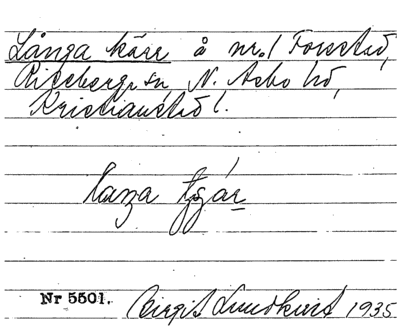 Långa kärr å nr. 1 Forestad,
Riseberga sn N. Åsbo hd,
Kristianstad l.
laŋa tɟár
Nr 5501. Birgit Lundkvist 1935